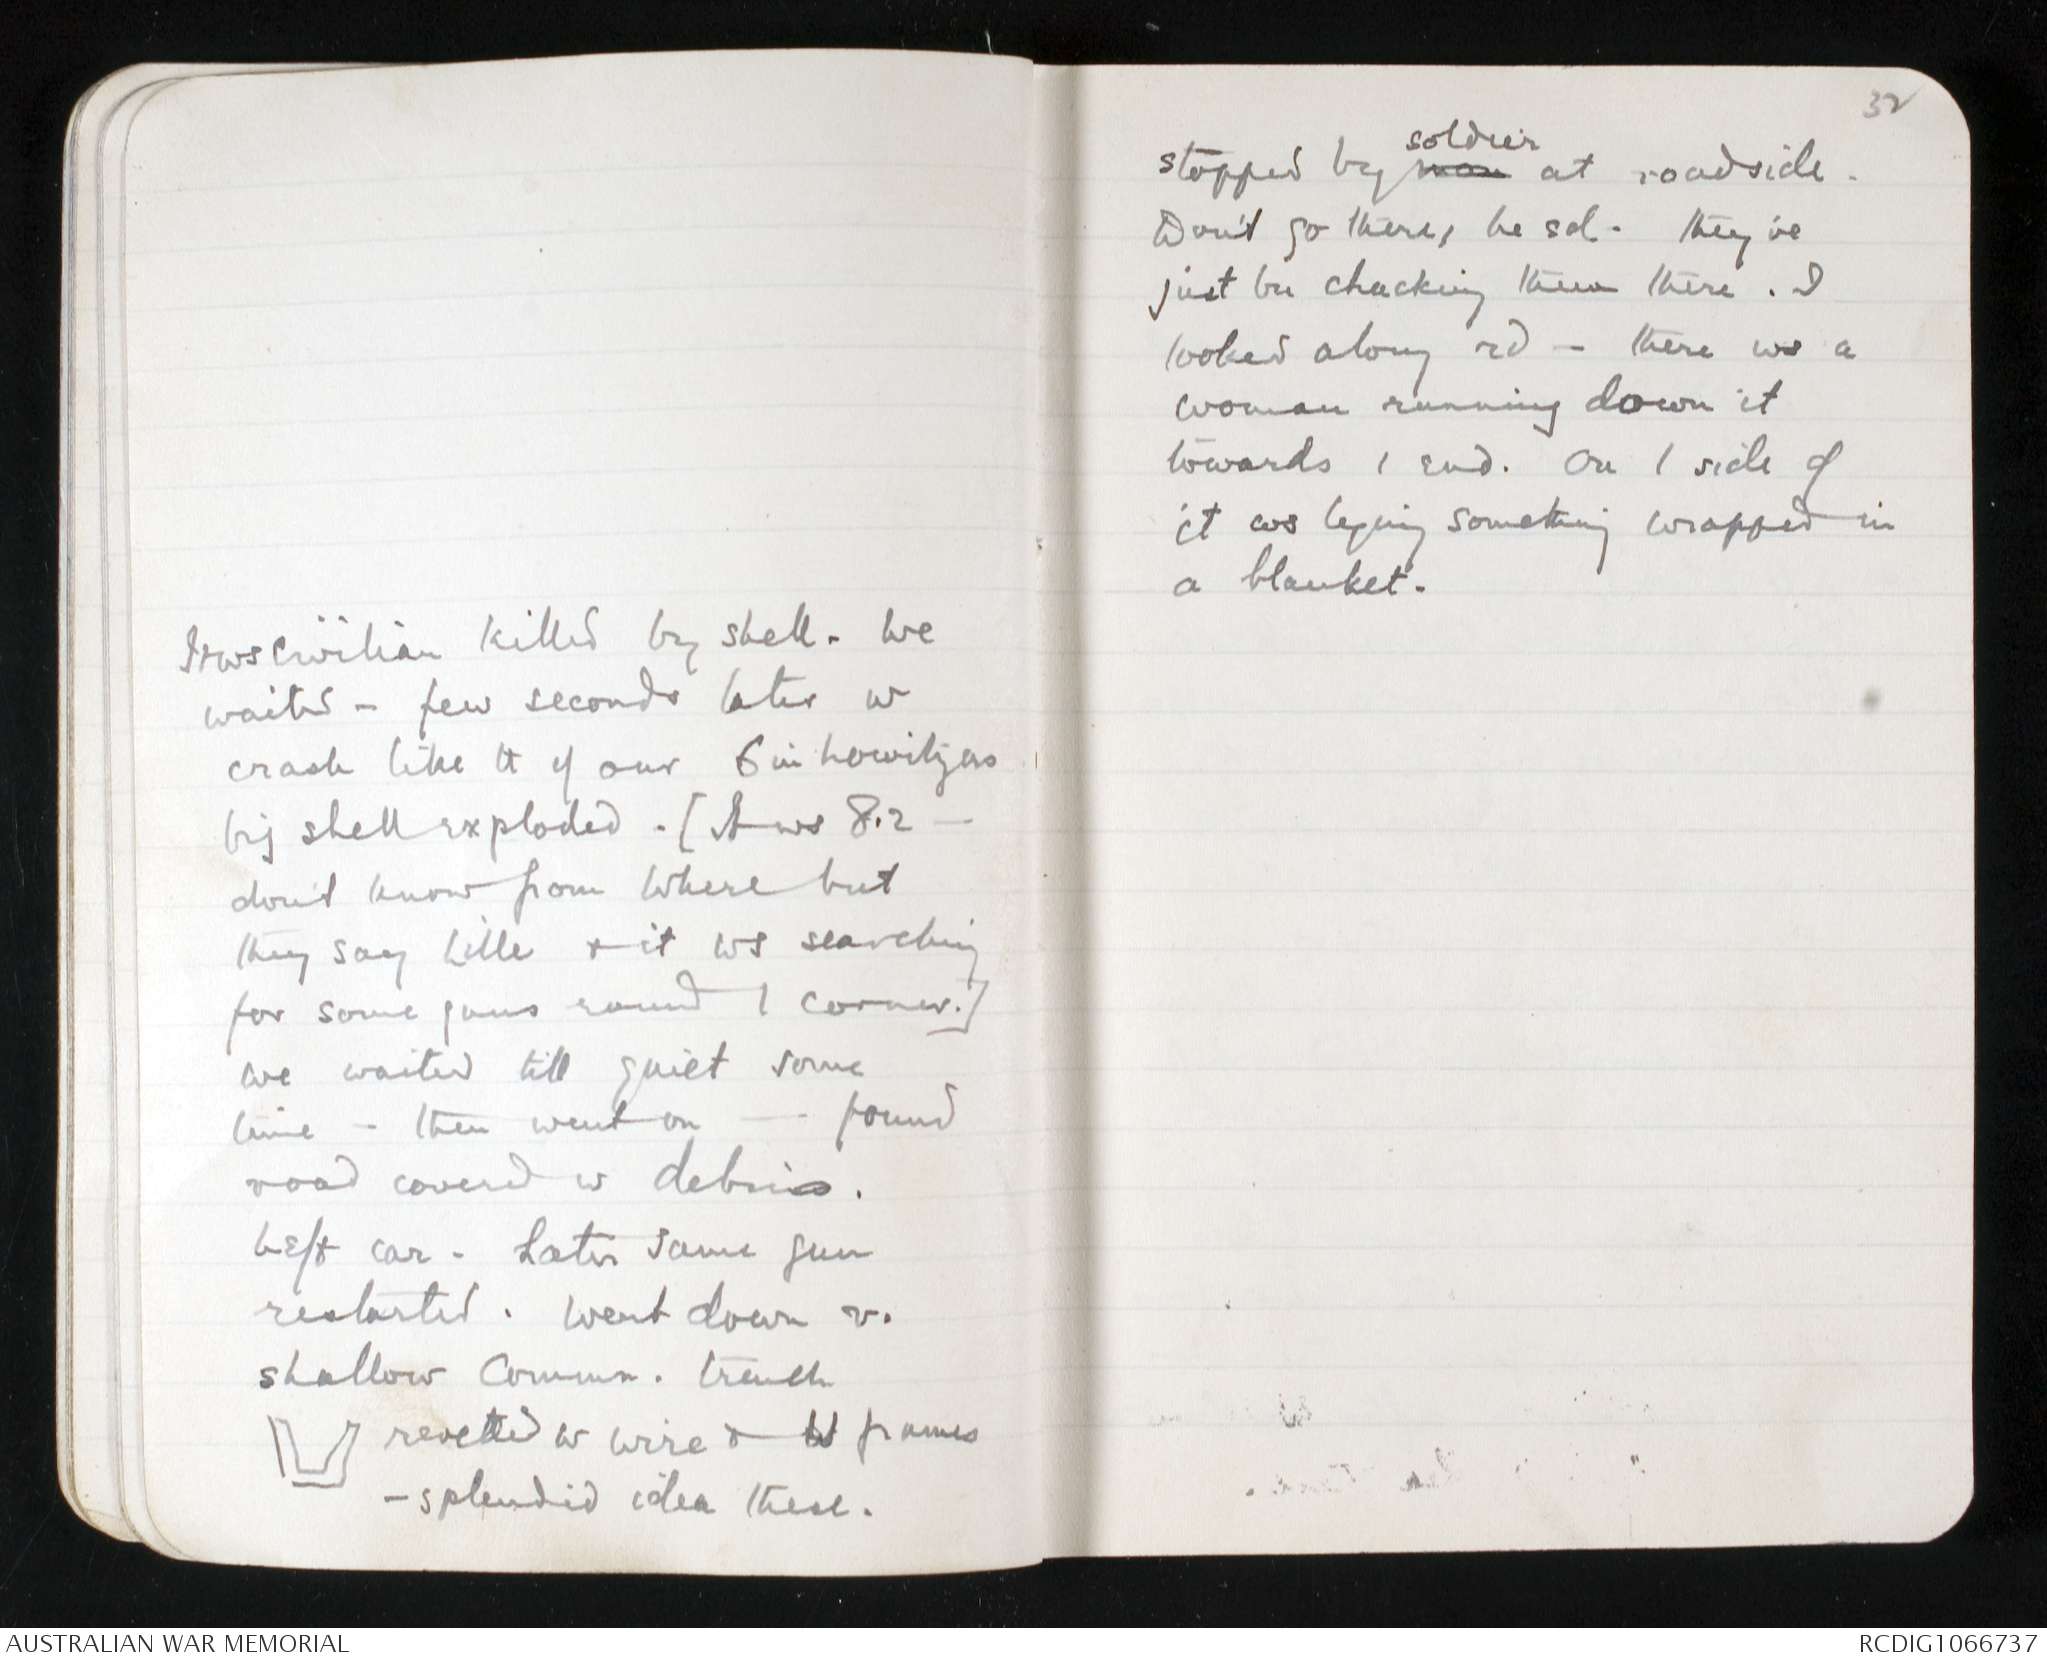 It ws civilian killed by shell. We
waited - few seconds later w
crash like tt of our 6 in howitzers
big shell exploded. [It ws 8.2 -
don't know from where but
they say Lille & it ws searching
for some guns round / corner.]
we waited till quiet some
time - then went on - found
road covered w debris.
Left car. Later same gun
restarted. Went down v.
shallow Commn. trench
revetted w wire & frames
- splendid idea these.
32
soldier
stopped by man at roadside.
Don't go there, he sd. they've
just bn chucking them there. I
looked along rd - there ws a
woman running down it
towards / end. On / side of
it ws lying something wrapped in
a blanket.
AUSTRALIAN WAR MEMORIAL
RCDIG1066737